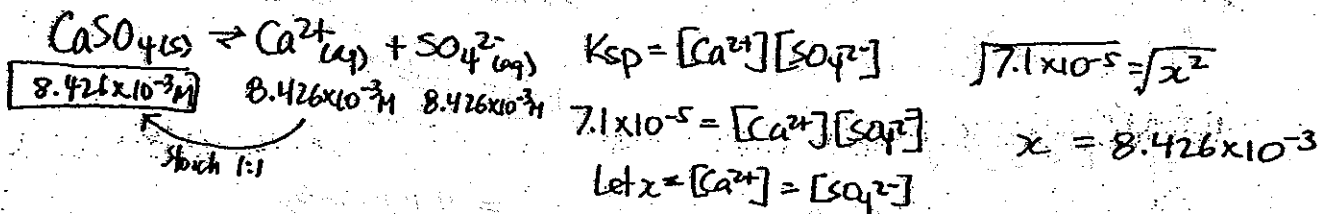 CaSO₄(s) ⇌ Ca²⁺(aq) + SO₄²⁻(aq)
8.426x10⁻³M 8.426x10⁻³M 8.426x10⁻³M
Stoich 1:1
Ksp = [Ca²⁺][SO₄²⁻]
7.1x10⁻⁵ = [Ca²⁺][SO₄²⁻]
Let x = [Ca²⁺] = [SO₄²⁻]
√7.1x10⁻⁵ = √x²
x = 8.426x10⁻³